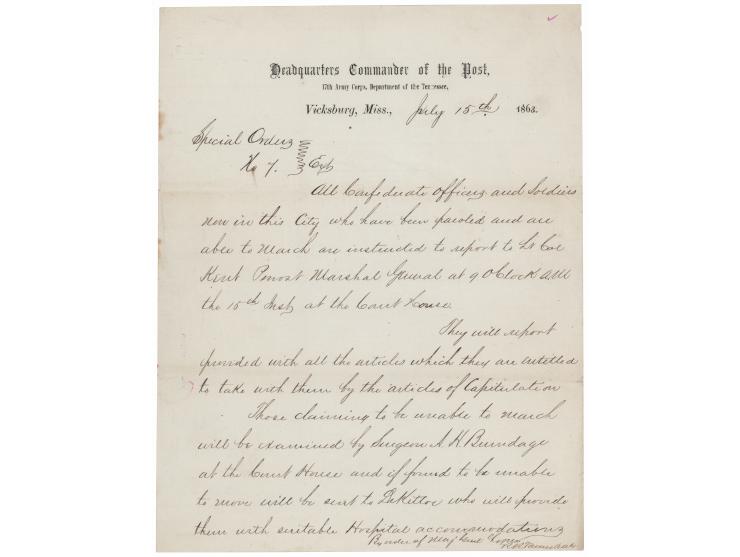 Headquarters Commander of the Post,
17th Army Corps, Department of the Tennessee,
Vicksburg, Miss., July 15th 1863.
Special Orders
No 7. Ext
All Confederate Officers and Soldiers
now in this City who have been paroled and are
able to March are instructed to report to Lt Col
Kent Provost Marshal General at 9 O'Clock AM
the 15th Inst at the Court House
They will report
provided with all the articles which they are entitled
to take with them by the articles of Capitulation
Those claiming to be unable to march
will be examined by Surgeon A. H. Brundage
at the Court House and if found to be unable
to move will be sent to Dr Kittoe who will provide
them with suitable Hospital accommodations
By order of Maj Genl Logan